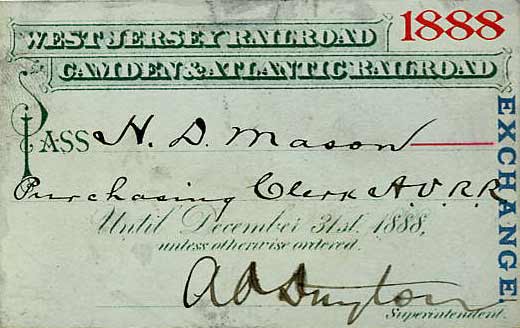 WEST JERSEY RAILROAD 1888
CAMDEN & ATLANTIC RAILROAD
PASS H. D. Mason
Purchasing Clerk A.V.R.R.
Until December 31st. 1888,
unless otherwise ordered.
A O Dayton
Superintendent.
EXCHANGE.